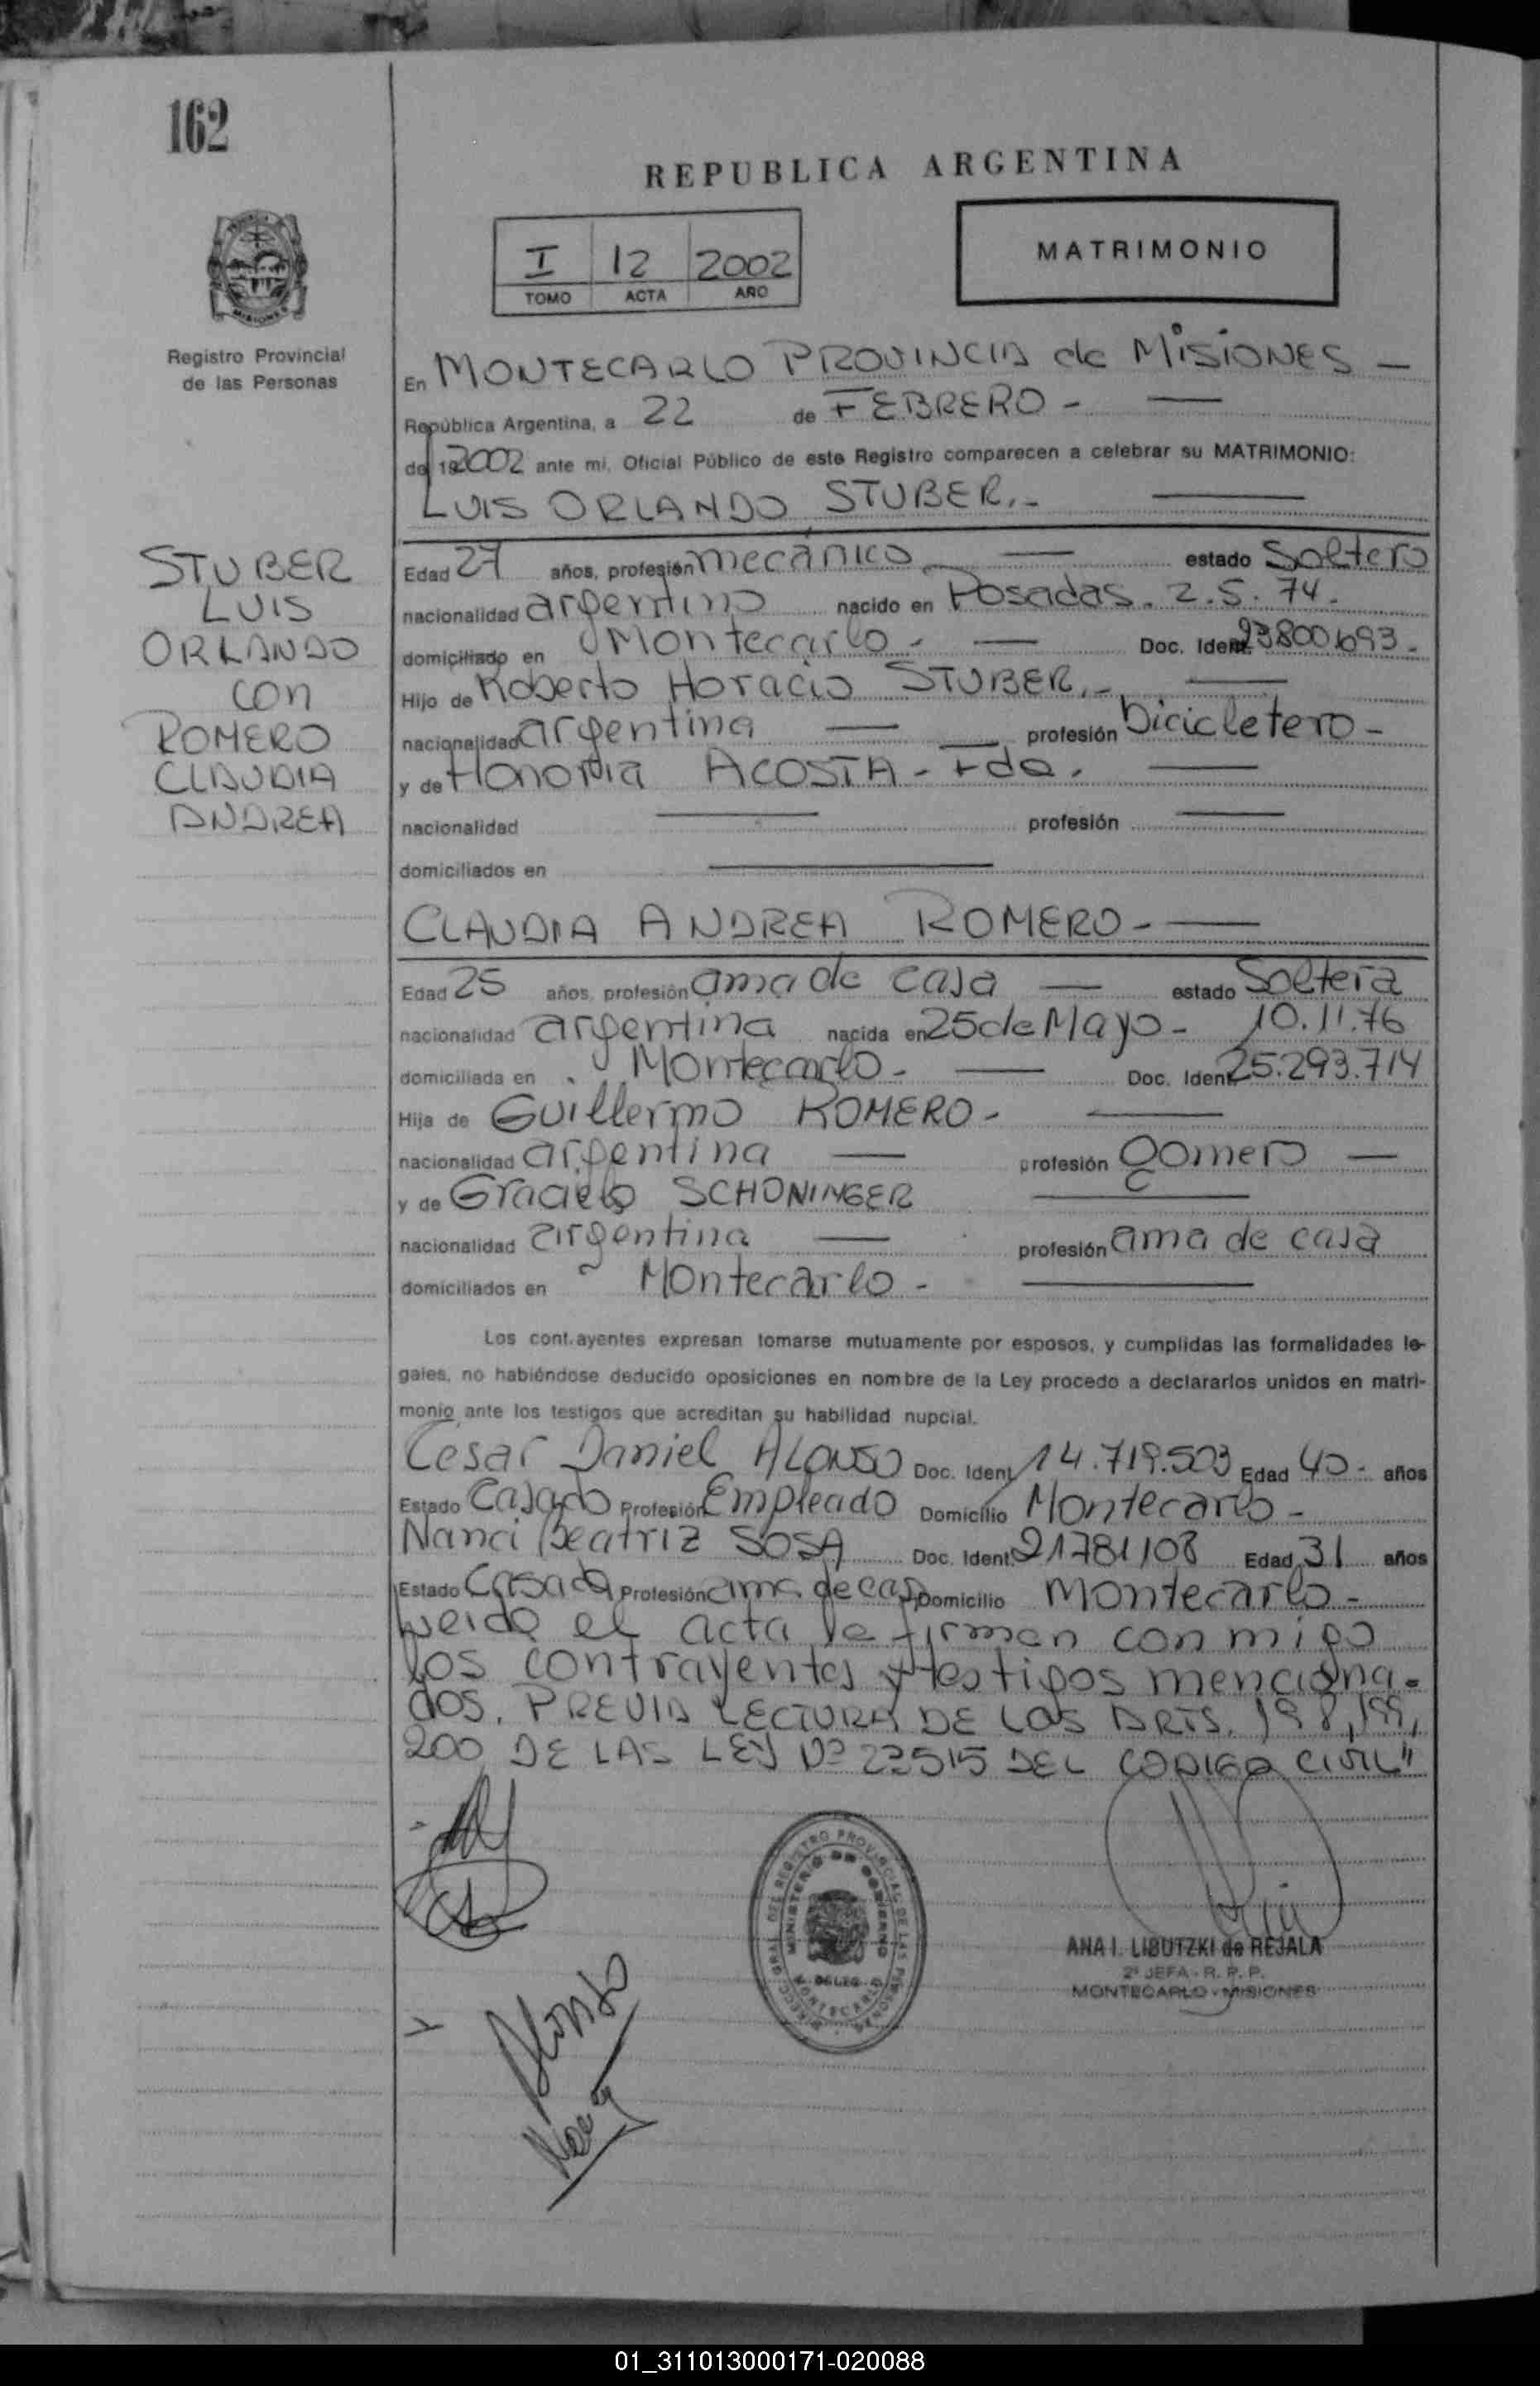 162
REPUBLICA ARGENTINA
I 12 2002
TOMO ACTA AÑO
MATRIMONIO
MISIONES
Registro Provincial
de las Personas
En MONTECARLO PROVINCIA de MISIONES —
República Argentina, a 22 de FEBRERO - —
del 192002 ante mi, Oficial Público de este Registro comparecen a celebrar su MATRIMONIO:
LUIS ORLANDO STUBER.- —
STUBER
LUIS
ORLANDO
con
ROMERO
CLAUDIA
ANDREA
Edad 27 años, profesión mecánico — estado Soltero
nacionalidad argentino nacido en Posadas. 2.5.74.
domiciliado en Montecarlo - — Doc. Ident. 23800693-
Hijo de Roberto Horacio STUBER.- —
nacionalidad argentina — profesión bicicletero -
y de Honoria ACOSTA - Fda. —
nacionalidad — profesión —
domiciliados en —
CLAUDIA ANDREA ROMERO - —
Edad 25 años, profesión ama de casa — estado Soltera
nacionalidad argentina nacida en 25 de Mayo - 10.11.76
domiciliada en Montecarlo - — Doc. Ident. 25.293.714
Hija de Guillermo ROMERO - —
nacionalidad argentina — profesión gomero —
y de Graciela SCHONINGER —
nacionalidad argentina — profesión ama de casa
domiciliados en Montecarlo - —
Los contrayentes expresan tomarse mutuamente por esposos, y cumplidas las formalidades le-
gales, no habiéndose deducido oposiciones en nombre de la Ley procedo a declararlos unidos en matri-
monio ante los testigos que acreditan su habilidad nupcial.
Cesar Daniel ALONSO Doc. Ident. 14.719.503 Edad 40- años
Estado Casado Profesión Empleado Domicilio Montecarlo -
Nanci Beatriz SOSA Doc. Ident. 21781108 Edad 31 años
Estado Casada Profesión ama de casa Domicilio Montecarlo -
Leida el acta la firman con migo
los contrayentes y testigos menciona-
dos. PREVIA LECTURA DE LOS ARTS. 198, 199,
200 DE LAS LEY Nº 23515 DEL CODIGO CIVIL"
DIRECC. GRAL. DEL REGISTRO PROVINCIAL DE LAS PERSONAS
MINISTERIO DE GOBIERNO
DELEG.
MONTECARLO
ANA I. LIBUTZKI de REJALA
2ª JEFA - R. P. P.
MONTECARLO - MISIONES
Alonso
01_311013000171-020088